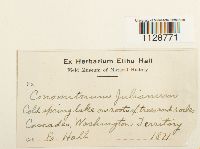 1128771
Ex Herbarium Elihu Hall
Field Museum of Natural History
Conomitrium Julianum
Cold spring lake on roots of trees and rocks
Cascades, Washington Territory
E. Hall 1871